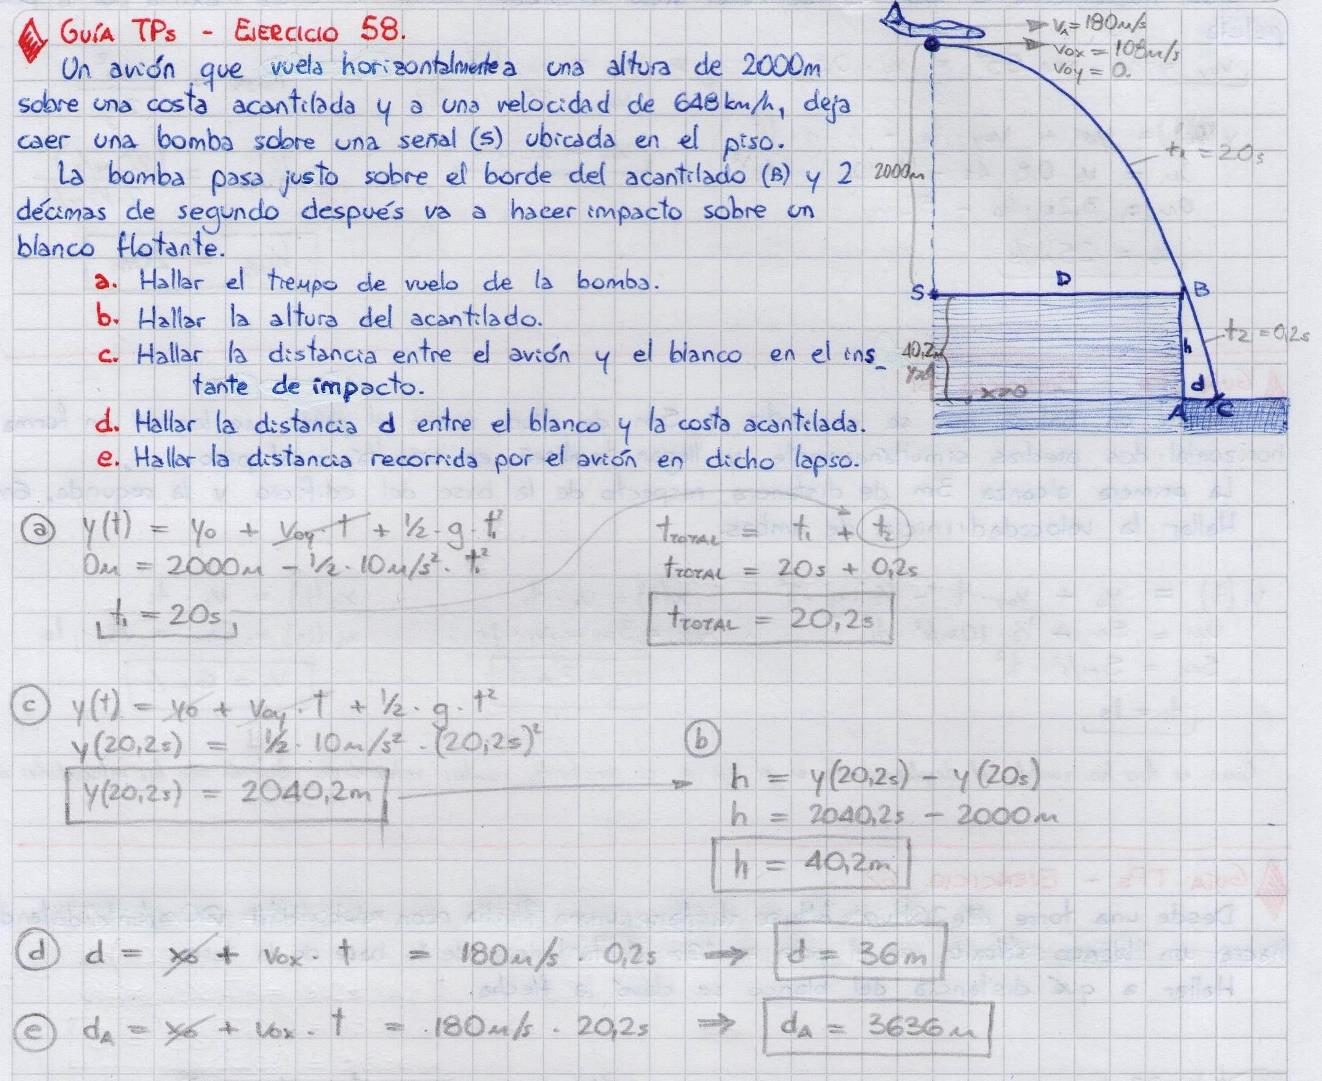 Guía TPs - Ejercicio 58.
Un avión que vuela horizontalmente a una altura de 2000m
sobre una costa acantilada y a una velocidad de 648km/h, deja
caer una bomba sobre una señal (s) ubicada en el piso.
La bomba pasa justo sobre el borde del acantilado (B) y 2
décimas de segundo después va a hacer impacto sobre un
blanco flotante.
a. Hallar el tiempo de vuelo de la bomba.
b. Hallar la altura del acantilado.
c. Hallar la distancia entre el avión y el blanco en el ins_
tante de impacto.
d. Hallar la distancia d entre el blanco y la costa acantilada.
e. Hallar la distancia recorrida por el avión en dicho lapso.
VA = 180m/s
Vox = 108m/s
Voy = 0.
t1 = 20s
2000m
S
D
B
t2 = 0,2s
40,2m
h
x=0
d
A
C
a y(t) = yo + voy.t + 1/2.g.t1²
0m = 2000m - 1/2.10m/s².t1²
t1 = 20s
tTOTAL = t1 + t2
tTOTAL = 20s + 0,2s
tTOTAL = 20,2s
c y(t) = yo + voy.t + 1/2.g.t²
y(20,2s) = 1/2.10m/s².(20,2s)²
y(20,2s) = 2040,2m
b
h = y(20,2s) - y(20s)
h = 2040,2s - 2000m
h = 40,2m
d d = xo + vox.t = 180m/s . 0,2s ⇒ d = 36m
e dA = xo + vox.t = .180m/s . 20,2s ⇒ dA = 3636m